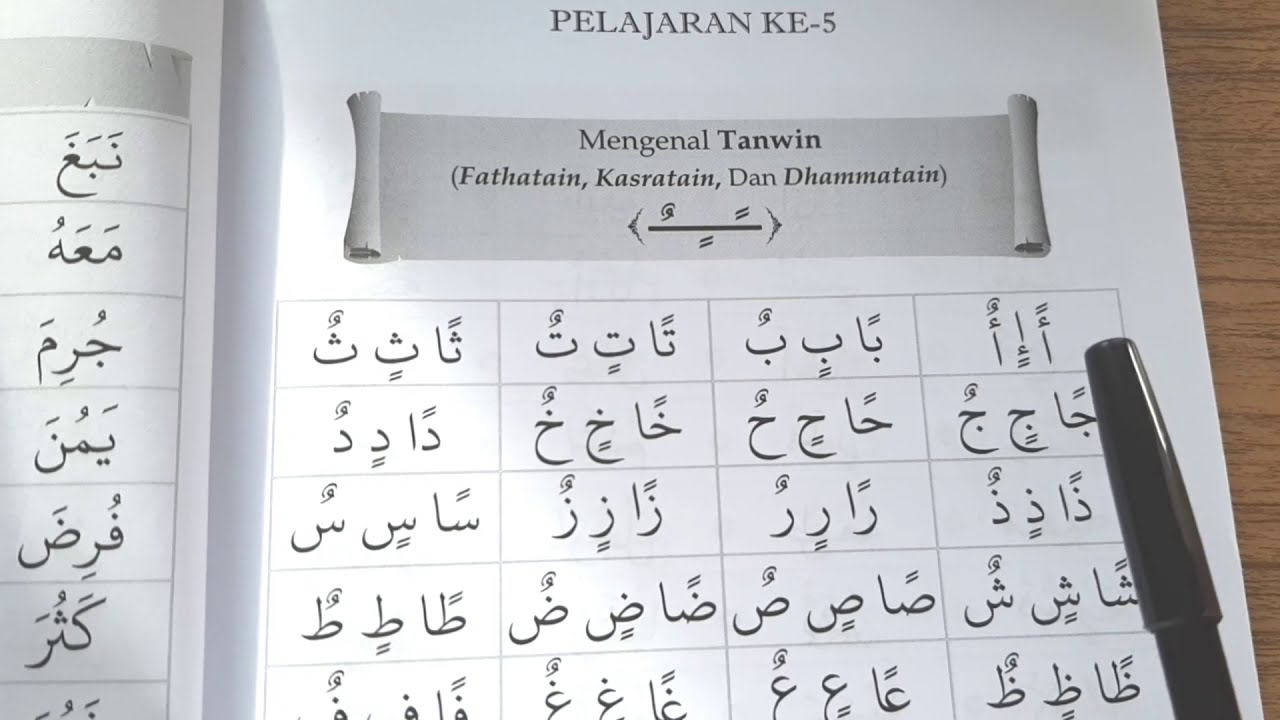 PELAJARAN KE-5
Mengenal Tanwin
(Fathatain, Kasratain, Dan Dhammatain)
أً إٍ أٌ بًا بٍ بٌ تًا تٍ تٌ ثًا ثٍ ثٌ
جًا جٍ جٌ حًا حٍ حٌ خًا خٍ خٌ دًا دٍ دٌ
ذًا ذٍ ذٌ رًا رٍ رٌ زًا زٍ زٌ سًا سٍ سٌ
شًا شٍ شٌ صًا صٍ صٌ ضًا ضٍ ضٌ طًا طٍ طٌ
ظًا ظٍ ظٌ عًا عٍ عٌ غًا غٍ غٌ فًا فٍ فٌ
نَبَغَ
مَعَهُ
جُرِمَ
يَمُنَ
فُرِضَ
كَثُرَ